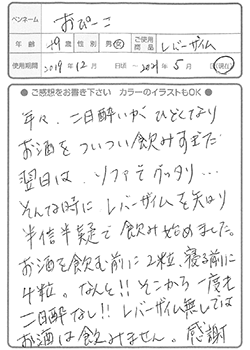 ペンネーム おぴーこ
年齢 29歳 性別 男・女 ご使用商品 レバーザイム
使用期間 2019年12月 日頃 〜 2021年5月 日(現在)
● ご感想をお書き下さい カラーのイラストもOK ●
年々、二日酔いがひどくなり
お酒をついつい飲みすぎた
翌日は、ソファでグッタリ…
そんな時にレバーザイムを知り
半信半疑で飲み始めました。
お酒を飲む前に2粒、寝る前に
4粒。なんと!!そこから一度も
二日酔なし!!レバーザイム無しでは
お酒は飲みません。感謝